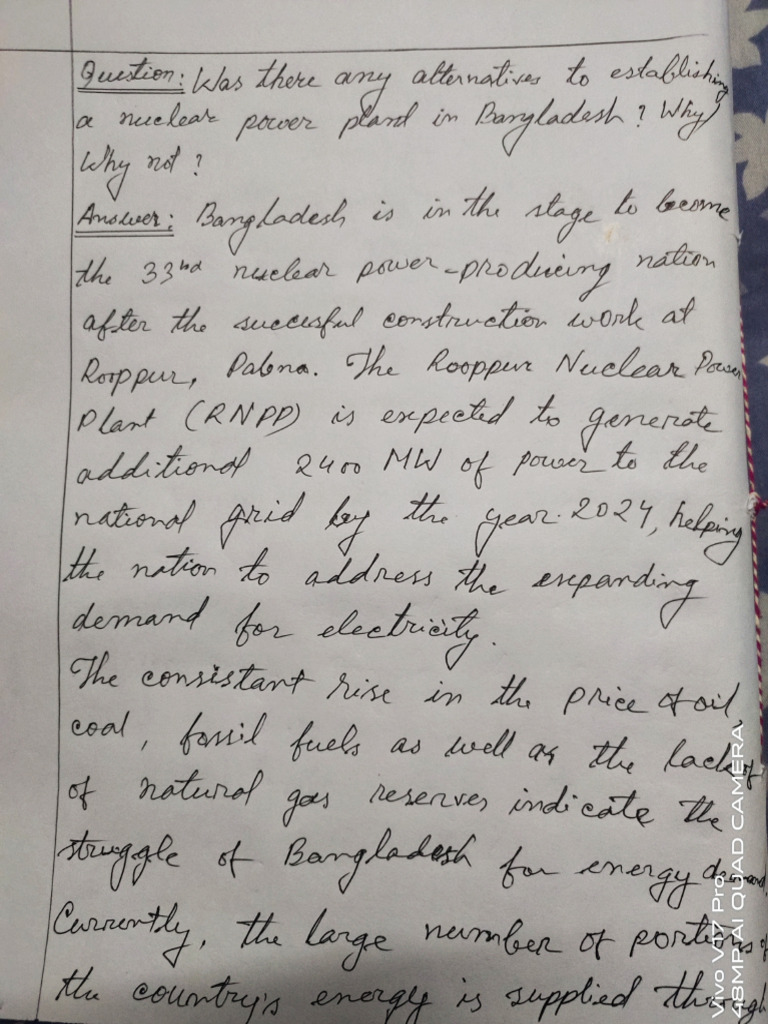 Question: Was there any alternatives to establishing
a nuclear power pland in Bangladesh? Why/
Why not?
Answer: Bangladesh is in the stage to become
the 33rd nuclear power-producing nation
after the succesful construction work at
Rooppur, Pabna. The Rooppur Nuclear Power
Plant (RNPP) is expected to generate
additional 2400 MW of power to the
national grid by the year 2024, helping
the nation to address the expanding
demand for electricity.
The consistant rise in the price of oil,
coal, fossil fuels as well as the lack of
of natural gas reserves indicate the
struggle of Bangladesh for energy demand.
Currently, the large number of portions of
the country's energy is supplied through
Vivo V17 Pro
48MP AI QUAD CAMERA